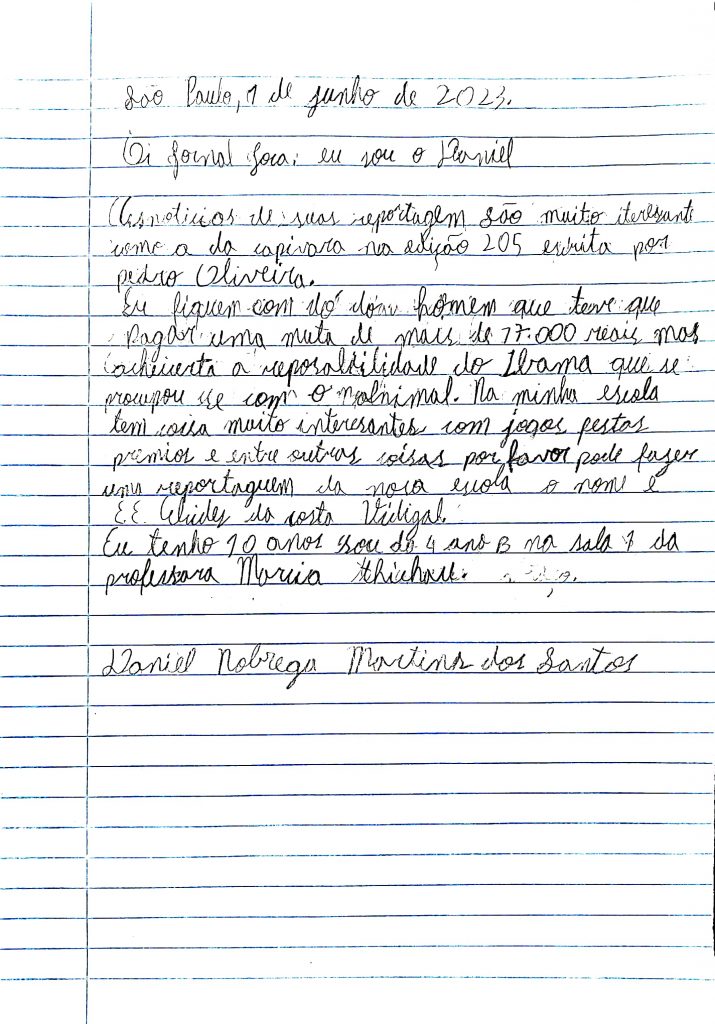 São Paulo, 1 de junho de 2023.
Oi Jornal Joca: eu sou o Daniel
As noticias de suas reportagem são muito iteresant
como a da capivara na edição 205 escrita por
pedro Oliveira.
Eu fiquem com dó do homem que teve que
pagar uma muta de mais de 17.000 reais mas
a reposabilidade do Ibama que se
procupou se com o animal. Na minha escola
tem coisa muito interesantes com jogos festas
premios e entre outras coisas por favor pode fazer
uma reportaguem da nosa escola o nome é
EE Clides da costa Vidigal.
Eu tenho 10 anos sou do 4 ano B na sala 7 da
professara Marcia
Daniel Nobrega Martins dos Santos